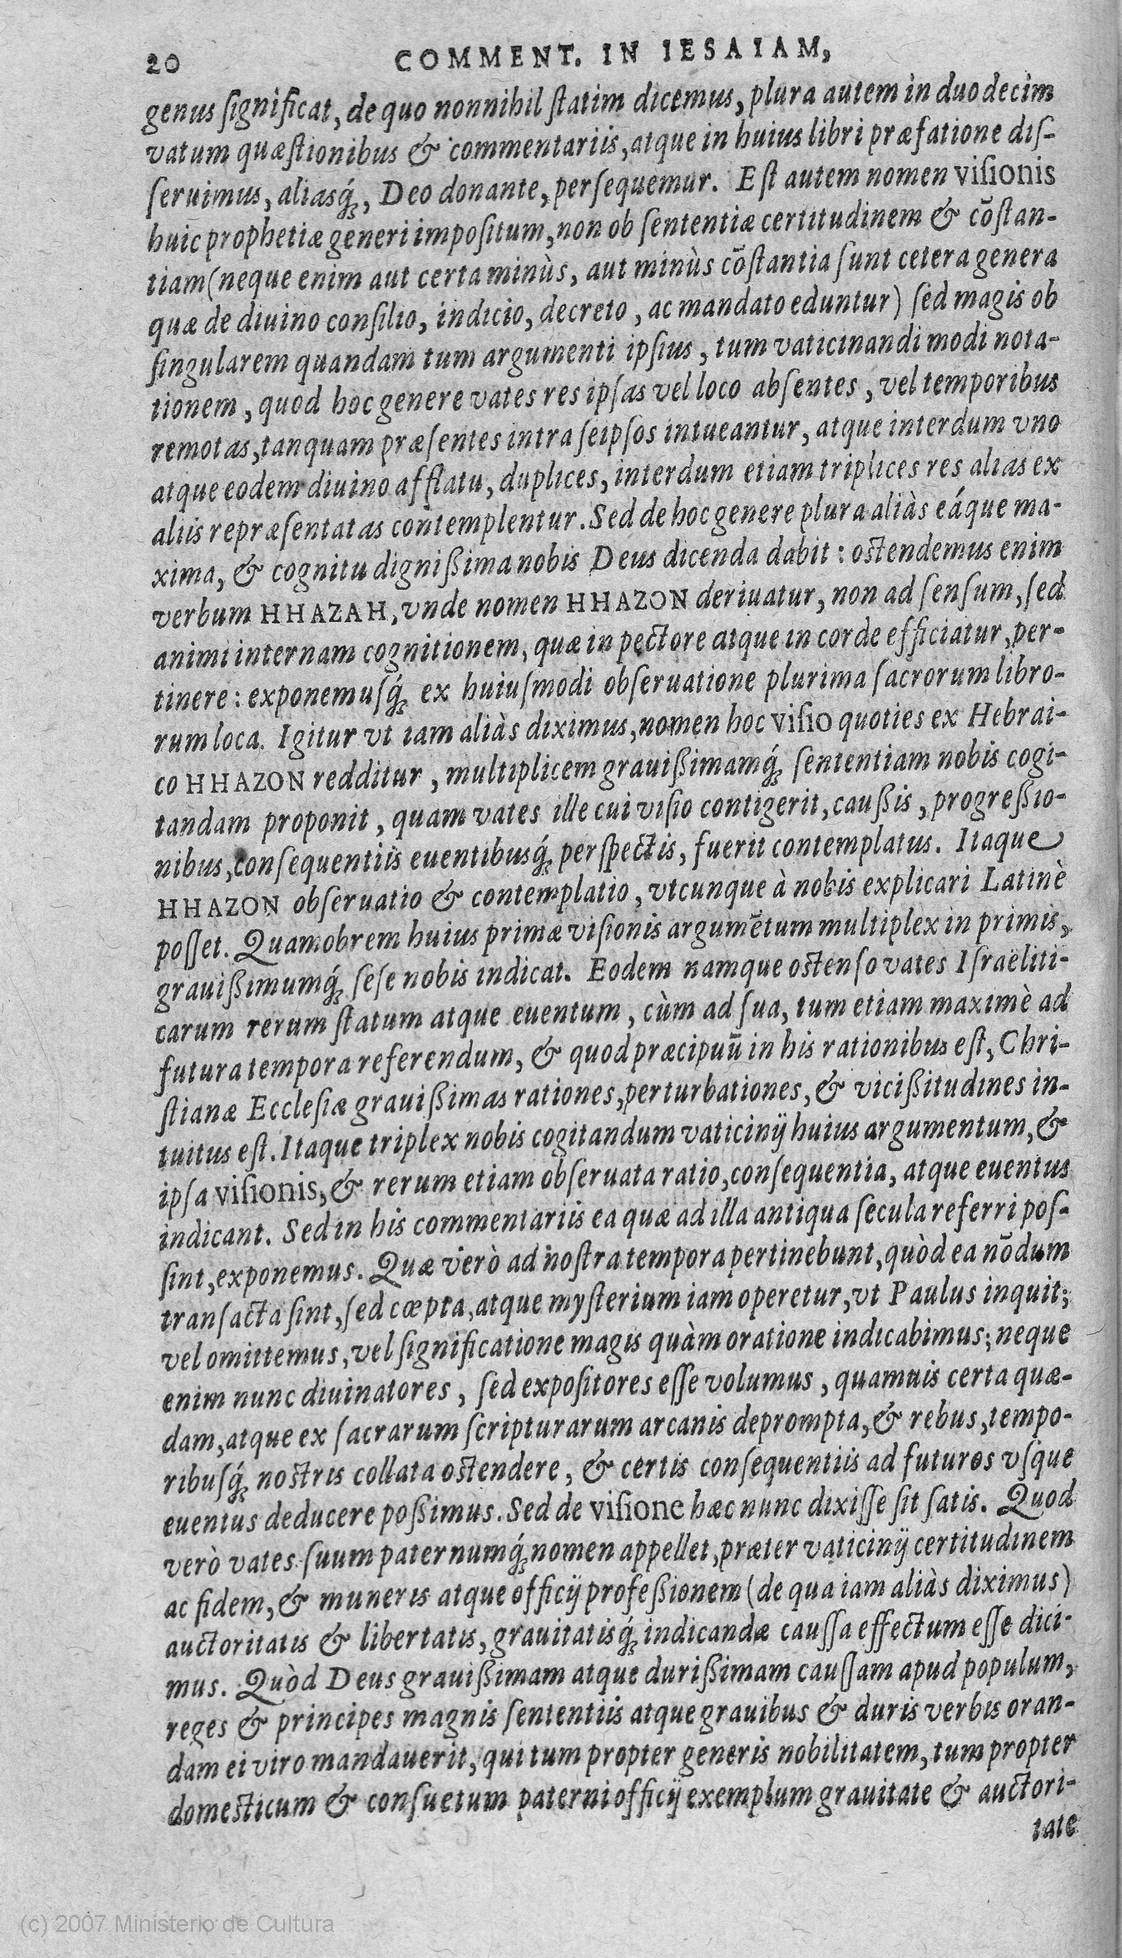 20 COMMENT. IN IESAIAM,
genus ſignificat, de quo nonnihil ſtatim dicemus, plura autem in duodecim
vatum quæſtionibus & commentariis, atque in huius libri præfatione diſ-
ſeruimus, aliasq́;, Deo donante, perſequemur. Eſt autem nomen viſionis
huic prophetiæ generi impoſitum, non ob ſententiæ certitudinem & cōſtan-
tiam (neque enim aut certa minùs, aut minùs cōſtantia ſunt cetera genera
quæ de diuino conſilio, indicio, decreto, ac mandato eduntur) ſed magis ob
ſingularem quandam tum argumenti ipſius, tum vaticinandi modi nota-
tionem, quod hoc genere vates res ipſas vel loco abſentes, vel temporibus
remotas, tanquam præſentes intra ſeipſos intueantur, atque interdum vno
atque eodem diuino afflatu, duplices, interdum etiam triplices res alias ex
aliis repræſentatas contemplentur. Sed de hoc genere plura aliàs eáque ma-
xima, & cognitu dignißima nobis Deus dicenda dabit: oſtendemus enim
verbum HHAZAH, vnde nomen HHAZON deriuatur, non ad ſenſum, ſed
animi internam cognitionem, quæ in pectore atque in corde efficiatur, per-
tinere: exponemuſq́; ex huiuſmodi obſeruatione plurima ſacrorum libro-
rum loca. Igitur vt iam aliàs diximus, nomen hoc viſio quoties ex Hebrai-
co HHAZON redditur, multiplicem grauißimamq́; ſententiam nobis cogi-
tandam proponit, quam vates ille cui viſio contigerit, caußis, progreßio-
nibus, conſequentiis euentibusq́; perſpectis, fuerit contemplatus. Itaque
HHAZON obſeruatio & contemplatio, vtcunque à nobis explicari Latinè
poſſet. Quamobrem huius primæ viſionis argumētum multiplex in primis,
grauißimumq́; ſeſe nobis indicat. Eodem namque oſtenſo vates Iſraëliti-
carum rerum ſtatum atque euentum, cùm ad ſua, tum etiam maximè ad
futura tempora referendum, & quod præcipuū in his rationibus eſt, Chri-
ſtianæ Eccleſiæ grauißimas rationes, perturbationes, & vicißitudines in-
tuitus eſt. Itaque triplex nobis cogitandum vaticinij huius argumentum, &
ipſa viſionis, & rerum etiam obſeruata ratio, conſequentia, atque euentus
indicant. Sed in his commentariis ea quæ ad illa antiqua ſecula referri poſ-
ſint, exponemus. Quæ verò ad noſtra tempora pertinebunt, quòd ea nōdum
tranſacta ſint, ſed cœpta, atque myſterium iam operetur, vt Paulus inquit;
vel omittemus, vel ſignificatione magis quàm oratione indicabimus; neque
enim nunc diuinatores, ſed expoſitores eſſe volumus, quamuis certa quæ-
dam, atque ex ſacrarum ſcripturarum arcanis deprompta, & rebus, tempo-
ribuſq́; noſtris collata oſtendere, & certis conſequentiis ad futuros vſque
euentus deducere poßimus. Sed de viſione hæc nunc dixiſſe ſit ſatis. Quod
verò vates ſuum paternumq́; nomen appellet, præter vaticinij certitudinem
ac fidem, & muneris atque officij profeßionem (de qua iam aliàs diximus)
auctoritatis & libertatis, grauitatisq́; indicandæ cauſſa effectum eſſe dici-
mus. Quòd Deus grauißimam atque durißimam cauſſam apud populum,
reges & principes magnis ſententiis atque grauibus & duris verbis oran-
dam ei viro mandauerit, qui tum propter generis nobilitatem, tum propter
domeſticum & conſuetum paterni officij exemplum grauitate & auctori-
tate
(c) 2007 Ministerio de Cultura